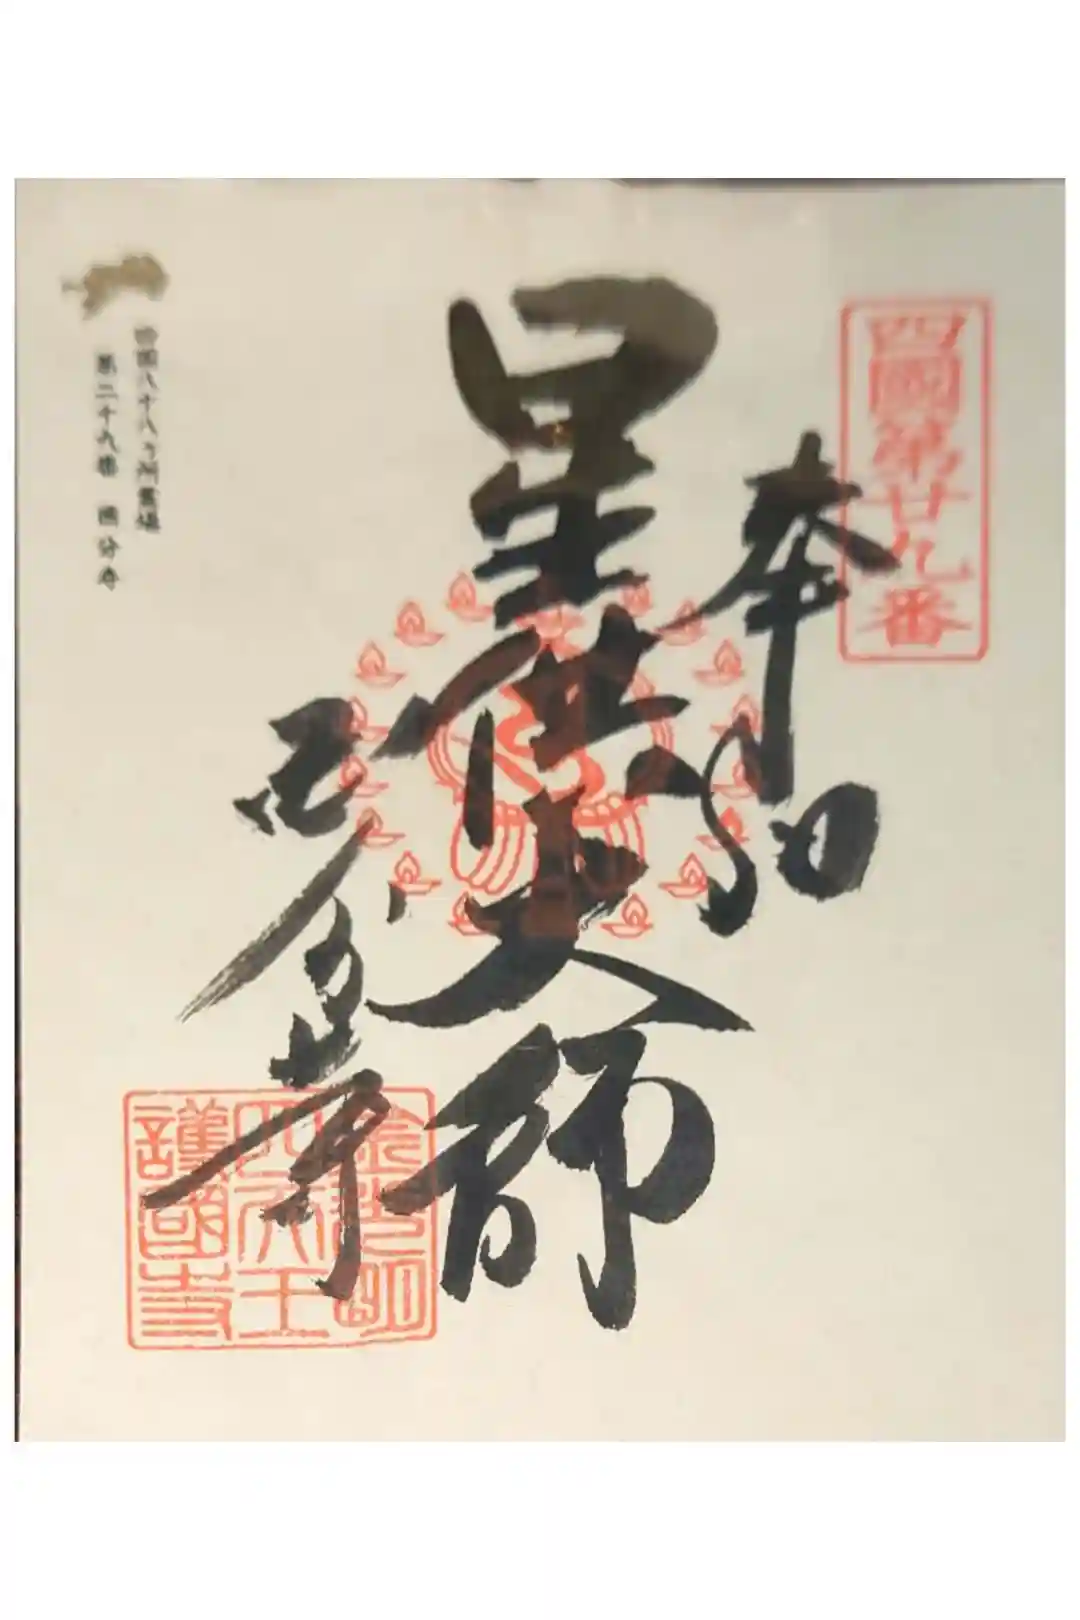 四國第廿九番
奉納
星供大師
国分寺
金光明
四天王
護國寺
四国八十八ヶ所霊場
第二十九番 國分寺